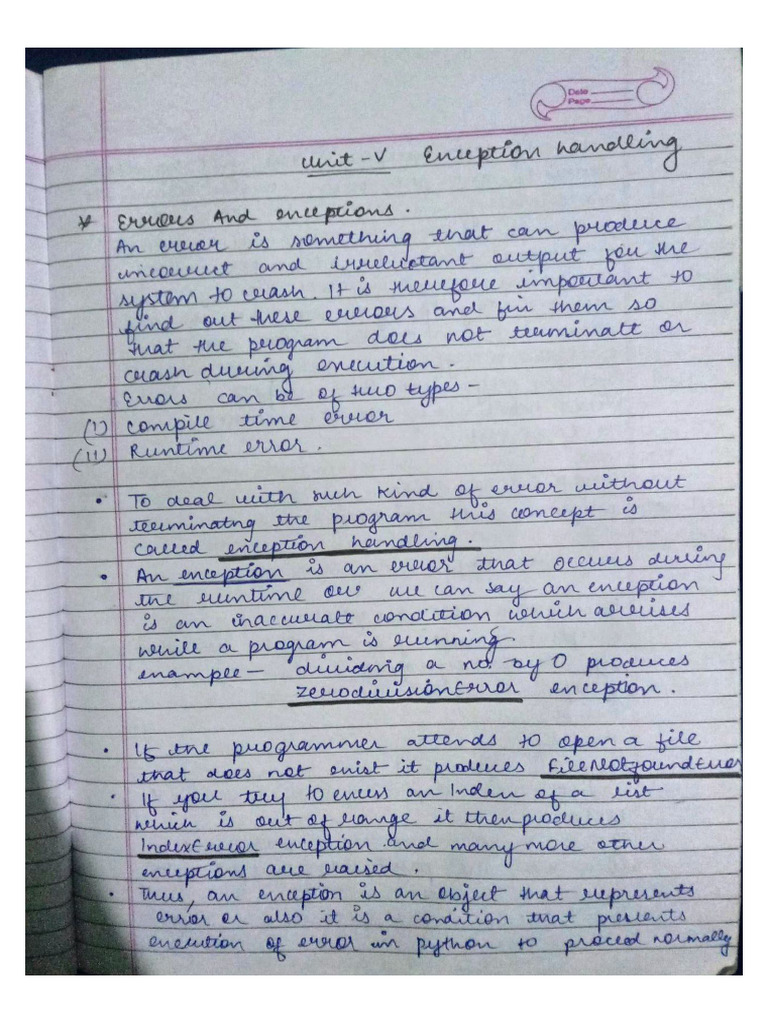 Date
Page
Unit-V Exception handling
* Errors And exceptions.
An error is something that can produce
incorrect and irreluctant output for the
system to crash. It is therefore important to
find out these errors and fix them so
that the program does not terminate or
crash during execution.
Errors can be of two types-
(I) Compile time error
(II) Runtime error.
• To deal with such kind of error without
terminatng the program this concept is
called exception handling.
• An exception is an error that occurs during
the runtime or we can say an exception
is an inaccurate condition which arrises
while a program is running.
example- dividing a no. by 0 produces
ZerodivisionError exception.
• If the programmer attends to open a file
that does not exist it produces FileNotfoundError
• If you try to excess an Index of a list
which is out of range it then produces
IndexError exception and many more other
exceptions are raised.
• Thus, an exception is an object that represents
error or also it is a condition that prevents
execution of error in python to proced normally